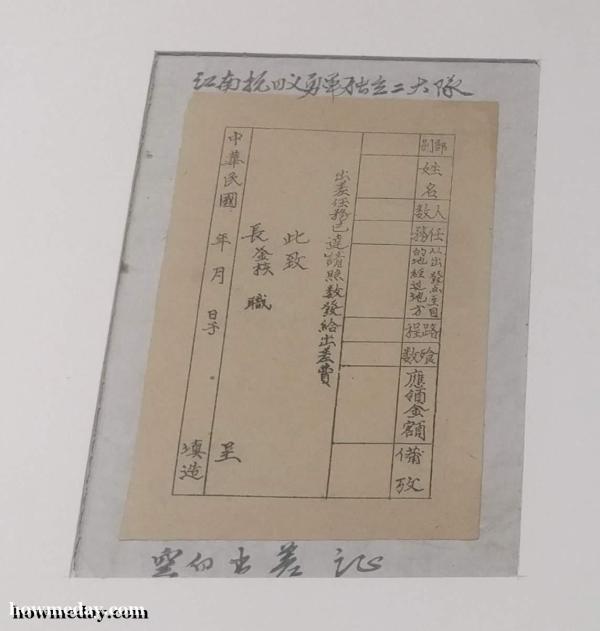 江南抗日义勇军独立二大隊
部别
姓名
人数
任務
以出發点至目的地經过地方
路程
飱数
應領金額
備攷
出差任務已達請照数發給出差費
此致
長鉴核 職 呈
中華民國 年 月 日 填造
空白出差证
howmeday.com
howmeday.com